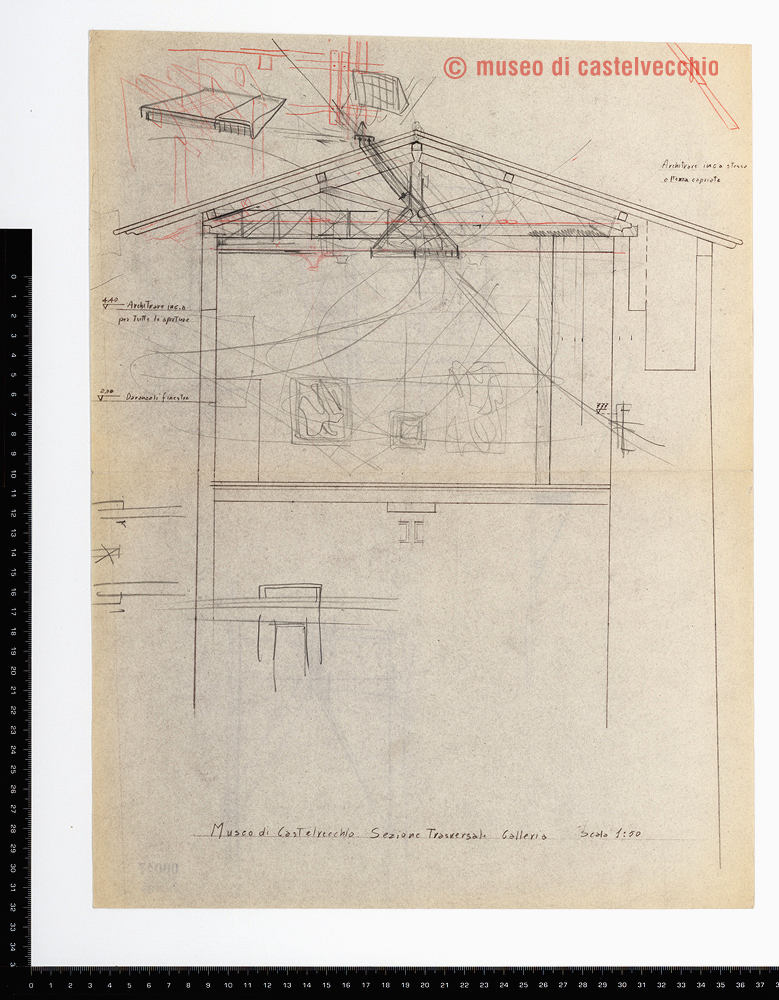 © museo di castelvecchio
Architrave
altezza capriata
4.40
Architrave
per tutte le aperture
Davanzali finestre
Museo di Castelvecchio Sezione Trasversale Galleria Scala 1:50
0 1 2 3 4 5 6 7 8 9 10 11 12 13 14 15 16 17 18 19 20 21 22 23 24 25 26 27 28 29 30 31 32 33 34 3
0 1 2 3 4 5 6 7 8 9 10 11 12 13 14 15 16 17 18 19 20 21 22 23 24 25 26 27 28 29 30 31 32 33 34 35 36 37 3